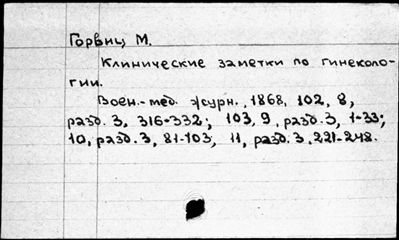 Горвиц М.
Клинические заметки по гинеколо-
гии.
Воен.-мед. журн., 1868, 102, 8,
разд. 3, 316-332; 103, 9, разд. 3, 1-33;
10, разд. 3, 81-103, 11, разд. 3, 221-248.